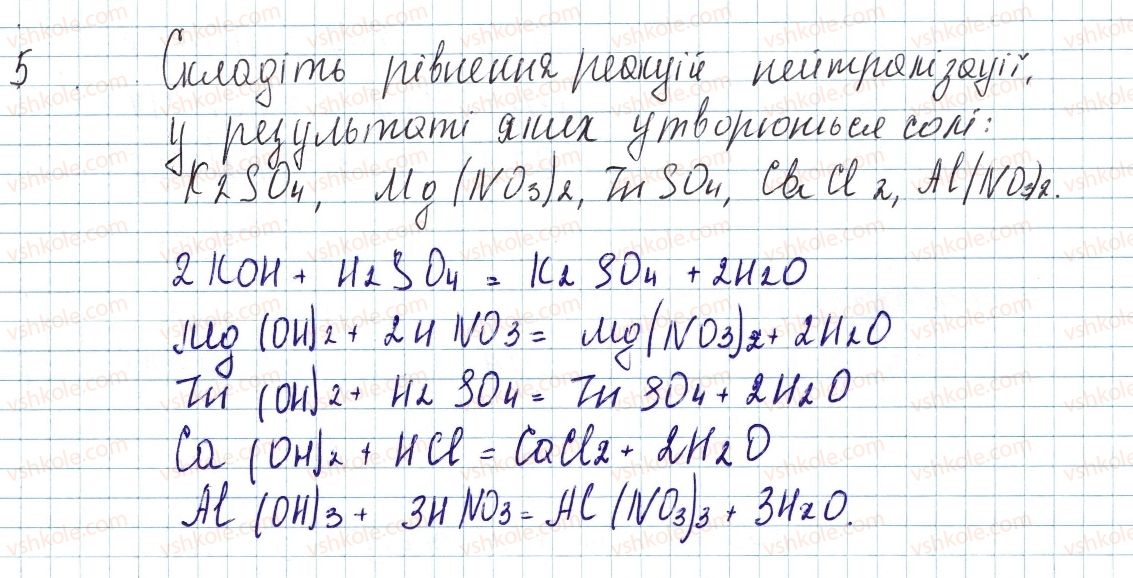 5 Складіть рівнення реакцій нейтралізації,
у результаті яких утворюються солі:
K2SO4, Mg(NO3)2, Zn SO4, CaCl2, Al(NO3)2.
2KOH + H2SO4 = K2SO4 + 2H2O
Mg(OH)2 + 2HNO3 = Mg(NO3)2 + 2H2O
Zn(OH)2 + H2SO4 = ZnSO4 + 2H2O
Ca(OH)2 + HCl = CaCl2 + 2H2O
Al(OH)3 + 3HNO3 = Al(NO3)3 + 3H2O.